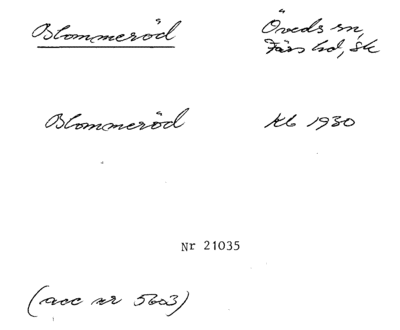 Blommeröd
Öveds sn,
Färs hd, Sk
Blommeröd
Kb 1930
Nr 21035
(acc nr 5603)